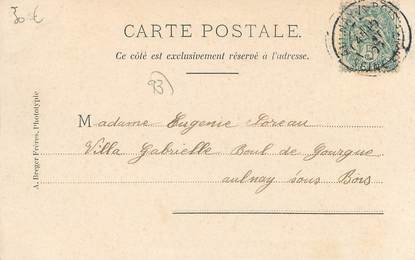 30 €
CARTE POSTALE.
Ce côté est exclusivement réservé à l'adresse.
93
Madame Eugenie Loreau
Villa Gabrielle Boul de Gourgue
aulnay sous Bois
A. Breger Frères, Phototypie